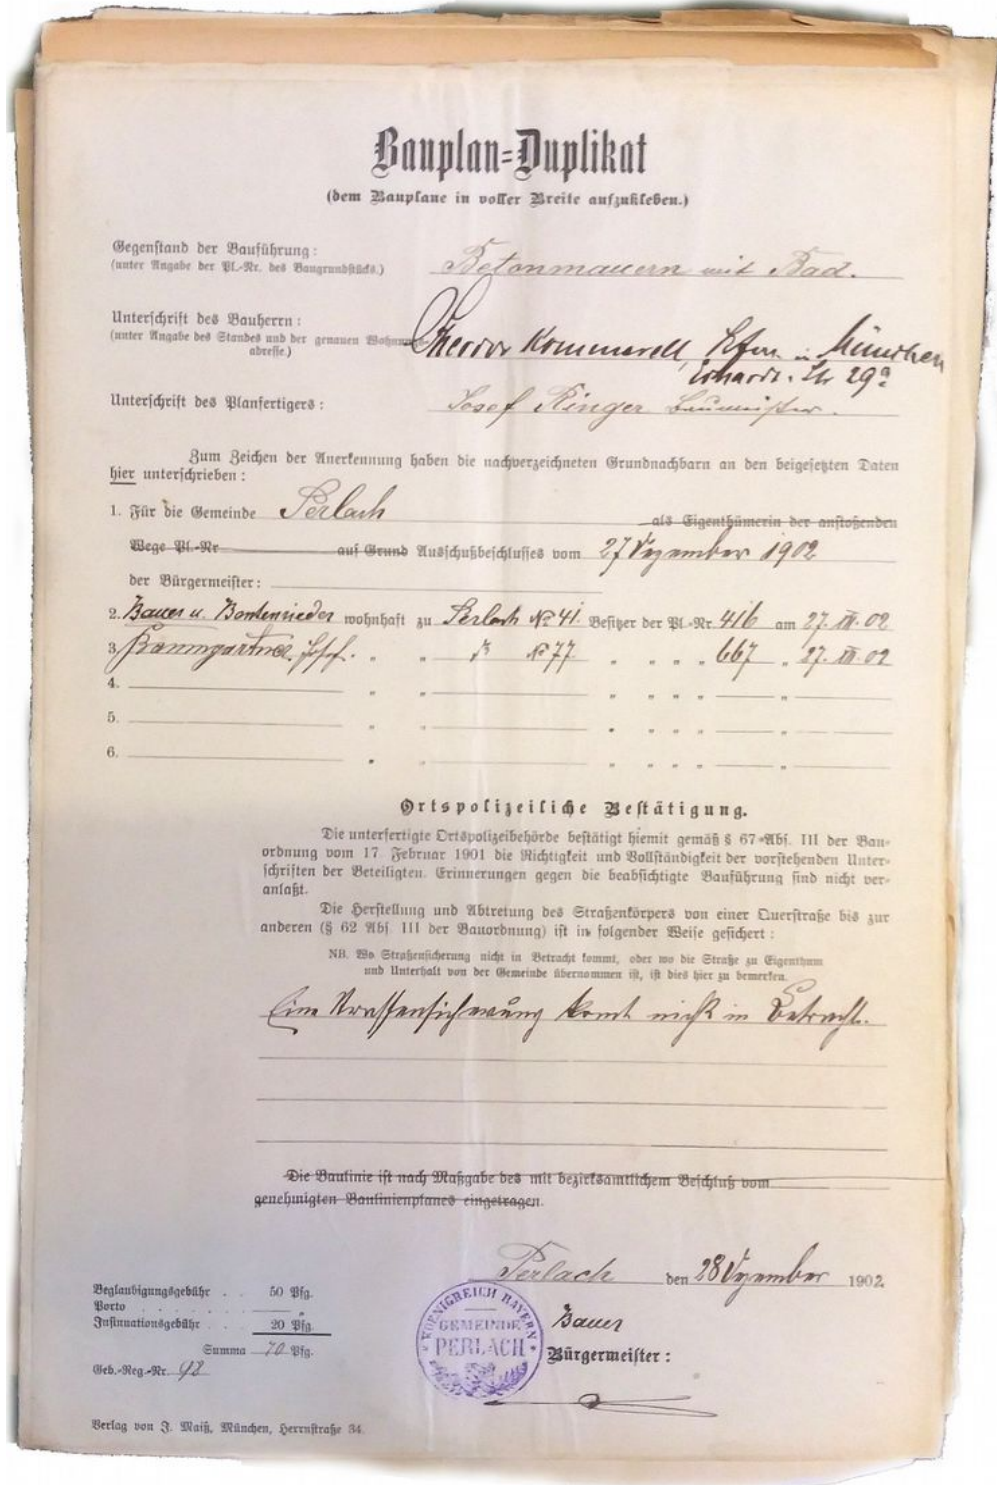 Bauplan=Duplikat
(dem Bauplane in voller Breite aufzukleben.)
Gegenstand der Bauführung:
(unter Angabe der Pl.-Nr. des Baugrundstücks.)
Betonmauern mit Bad.
Unterschrift des Bauherrn:
(unter Angabe des Standes und der genauen Wohnungs-
adresse.)
Theodor Kommerell, Kfm. in München
Erhardt-Str 29a
Unterschrift des Planfertigers:
Josef Ringer Baumeister.
Zum Zeichen der Anerkennung haben die nachverzeichneten Grundnachbarn an den beigesetzten Daten
hier unterschrieben:
1. Für die Gemeinde Perlach als Eigenthümerin der anstoßenden
Wege Pl.-Nr auf Grund Ausschußbeschlusses vom 27 Dezember 1902
der Bürgermeister:
2. Bauer u. Bontenrieder wohnhaft zu Perlach No 41. Besitzer der Pl.-Nr. 416 am 27. XII. 02
3. Baumgartner Josef. " " " No 77 " " " " 667 " 27. XII. 02
4. " " " " " " "
5. " " " " " " "
6. " " " " " " "
Ortspolizeiliche Bestätigung.
Die unterfertigte Ortspolizeibehörde bestätigt hiemit gemäß § 67 Abs. III der Bau-
ordnung vom 17. Februar 1901 die Richtigkeit und Vollständigkeit der vorstehenden Unter-
schriften der Beteiligten. Erinnerungen gegen die beabsichtigte Bauführung sind nicht ver-
anlaßt.
Die Herstellung und Abtretung des Straßenkörpers von einer Querstraße bis zur
anderen (§ 62 Abs. III der Bauordnung) ist in folgender Weise gesichert:
NB. Wo Straßensicherung nicht in Betracht kommt, oder wo die Straße zu Eigenthum
und Unterhalt von der Gemeinde übernommen ist, ist dies hier zu bemerken.
Eine Strassensicherung komt nicht in Betracht.
Die Baulinie ist nach Maßgabe des mit bezirksamtlichem Beschluß vom
genehmigten Baulinienplanes eingetragen.
Perlach den 28 Dezember 1902
Beglaubigungsgebühr . . 50 Pfg.
Porto . . . . . . "
Insinuationsgebühr . . . 20 Pfg.
Summa 70 Pfg.
Geb.-Reg.-Nr. 98
KOENIGREICH BAYERN
GEMEINDE
PERLACH
Bauer
Bürgermeister:
Verlag von J. Maiß, München, Herrnstraße 34.